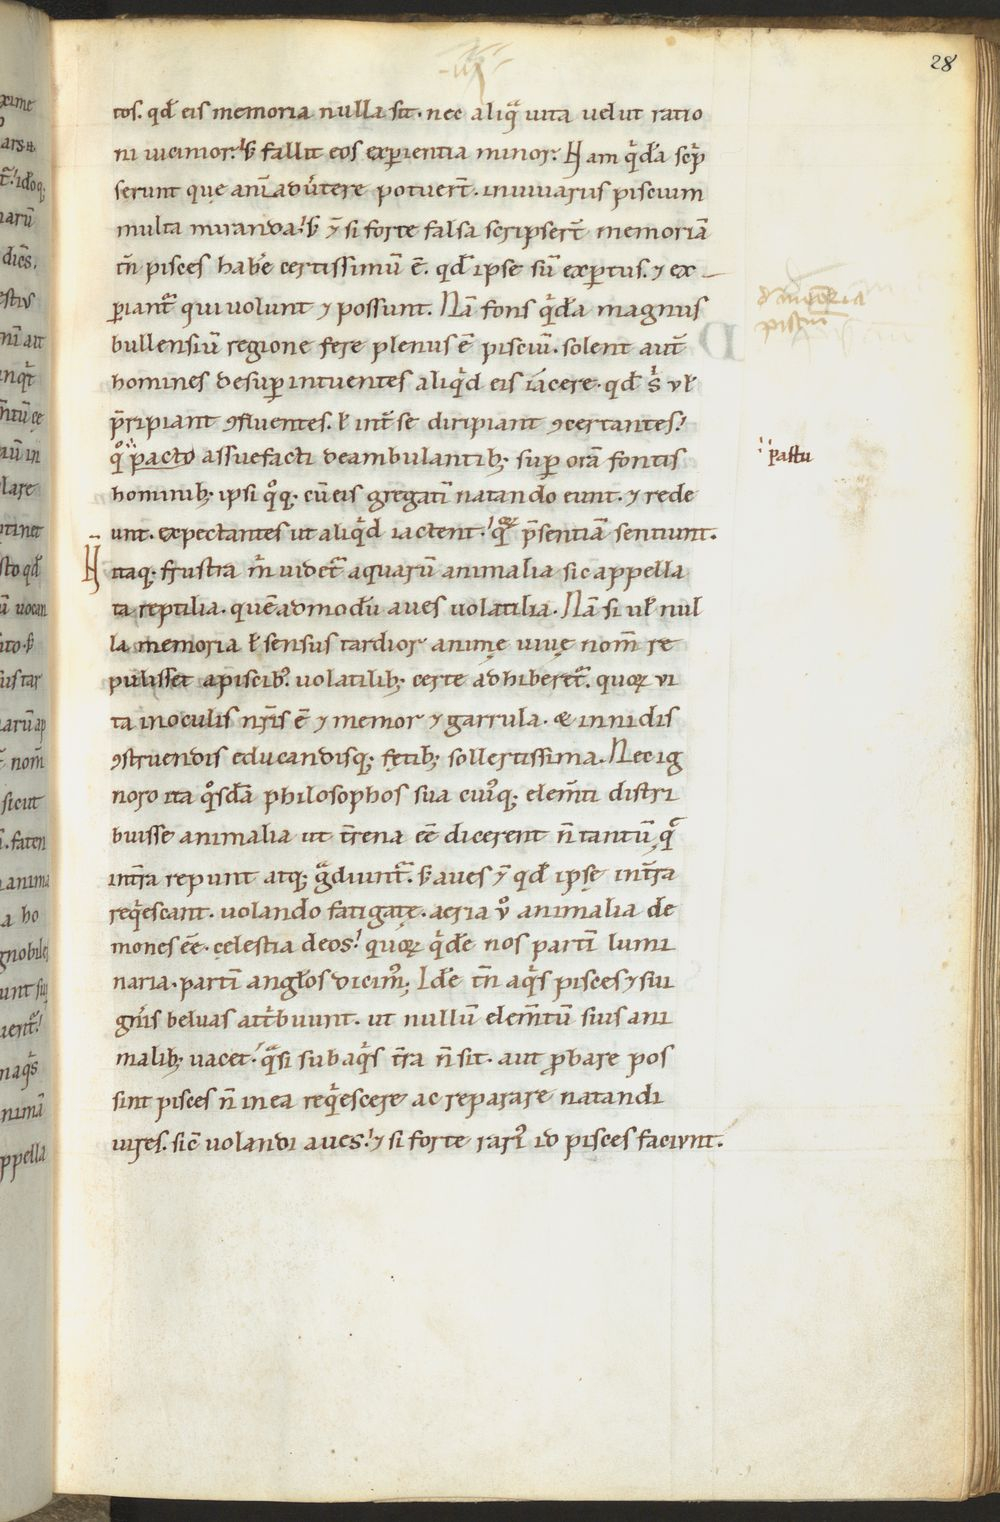 28
.iij.
tos. qđ eis memoria nulla sit. nec aliq̃ uita uelut ratio
ni uicinior. s; fallit eos exꝑientia minor. Nam q̃dã scp̃
serunt que anĩaduertere potuer̃t. in uiuariis piscium
multa miranda. s; ⁊̃ si forte falsa scripser̃t memoriã
tñ pisces habe certissimũ ẽ. qđ ipse sũ exꝑtus. ⁊ ex
ꝑiant̃ qui uolunt ⁊ possunt. Nã fons q̃dã magnus
bullensiũ regione fere plenus ẽ pisciũ. solent aut̃
homines desuꝑ intuentes aliq̃d eis iacere. qđ s̃ uł
p̃ripiant ꝯfluentes. ł int̃ se diripiant ꝯcertantes.
q̊ pacto assuefacti deambulantib; suꝑ orã fontis
hominib; ipsi q̊q; cũ eis gregatĩ natando eunt. ⁊ rede
unt. expectantes ut aliq̃d iactent. qꝝ p̃sentiã sentiunt.
pastu
Ñ itaq; frustra m̃ uidet̃ aquarũ animalia sic appella
ta reptilia. quẽadmodũ aues uolatilia. Nã si uł nul
la memoria ł sensus tardior animę uiuę nom̃ re
pulisset a piscib;. uolatilib; certe adhiberet̃. quoꝝ ui
ta in oculis nr̃is ẽ ⁊ memor ⁊ garrula. & in nidis
ꝯstruendis educandisq; fętib; sollertissima. Nec ig
noro ita q̊sdã philosophos sua cuiq; elem̃ti distri
buisse animalia ut t̃rena eẽ dicerent ñ tantũ q̃
int̃ra repunt atq; g̃diunt̃. s; aues ⁊̃ qđ ipsę int̃ra
req̃escant. uolando fatigatę. aeria ů animalia de
mones eẽ. cęlestia deos. quoꝝ q̃dẽ nos partĩ lumi
naria. partĩ angłos dicim⁹. Idẽ tñ aq̃s pisces ⁊ sui
gñis beluas att̃buunt. ut nullũ elem̃tũ suis ani
malib; uacet. q̃si sub aq̃s t̃ra ñ sit. aut ꝓbare pos
sint pisces ñ in ea req̃escere ac reparare natandi
uires. sic̃ uolandi aues. ⁊ si forte rari⁹ id pisces faciunt.